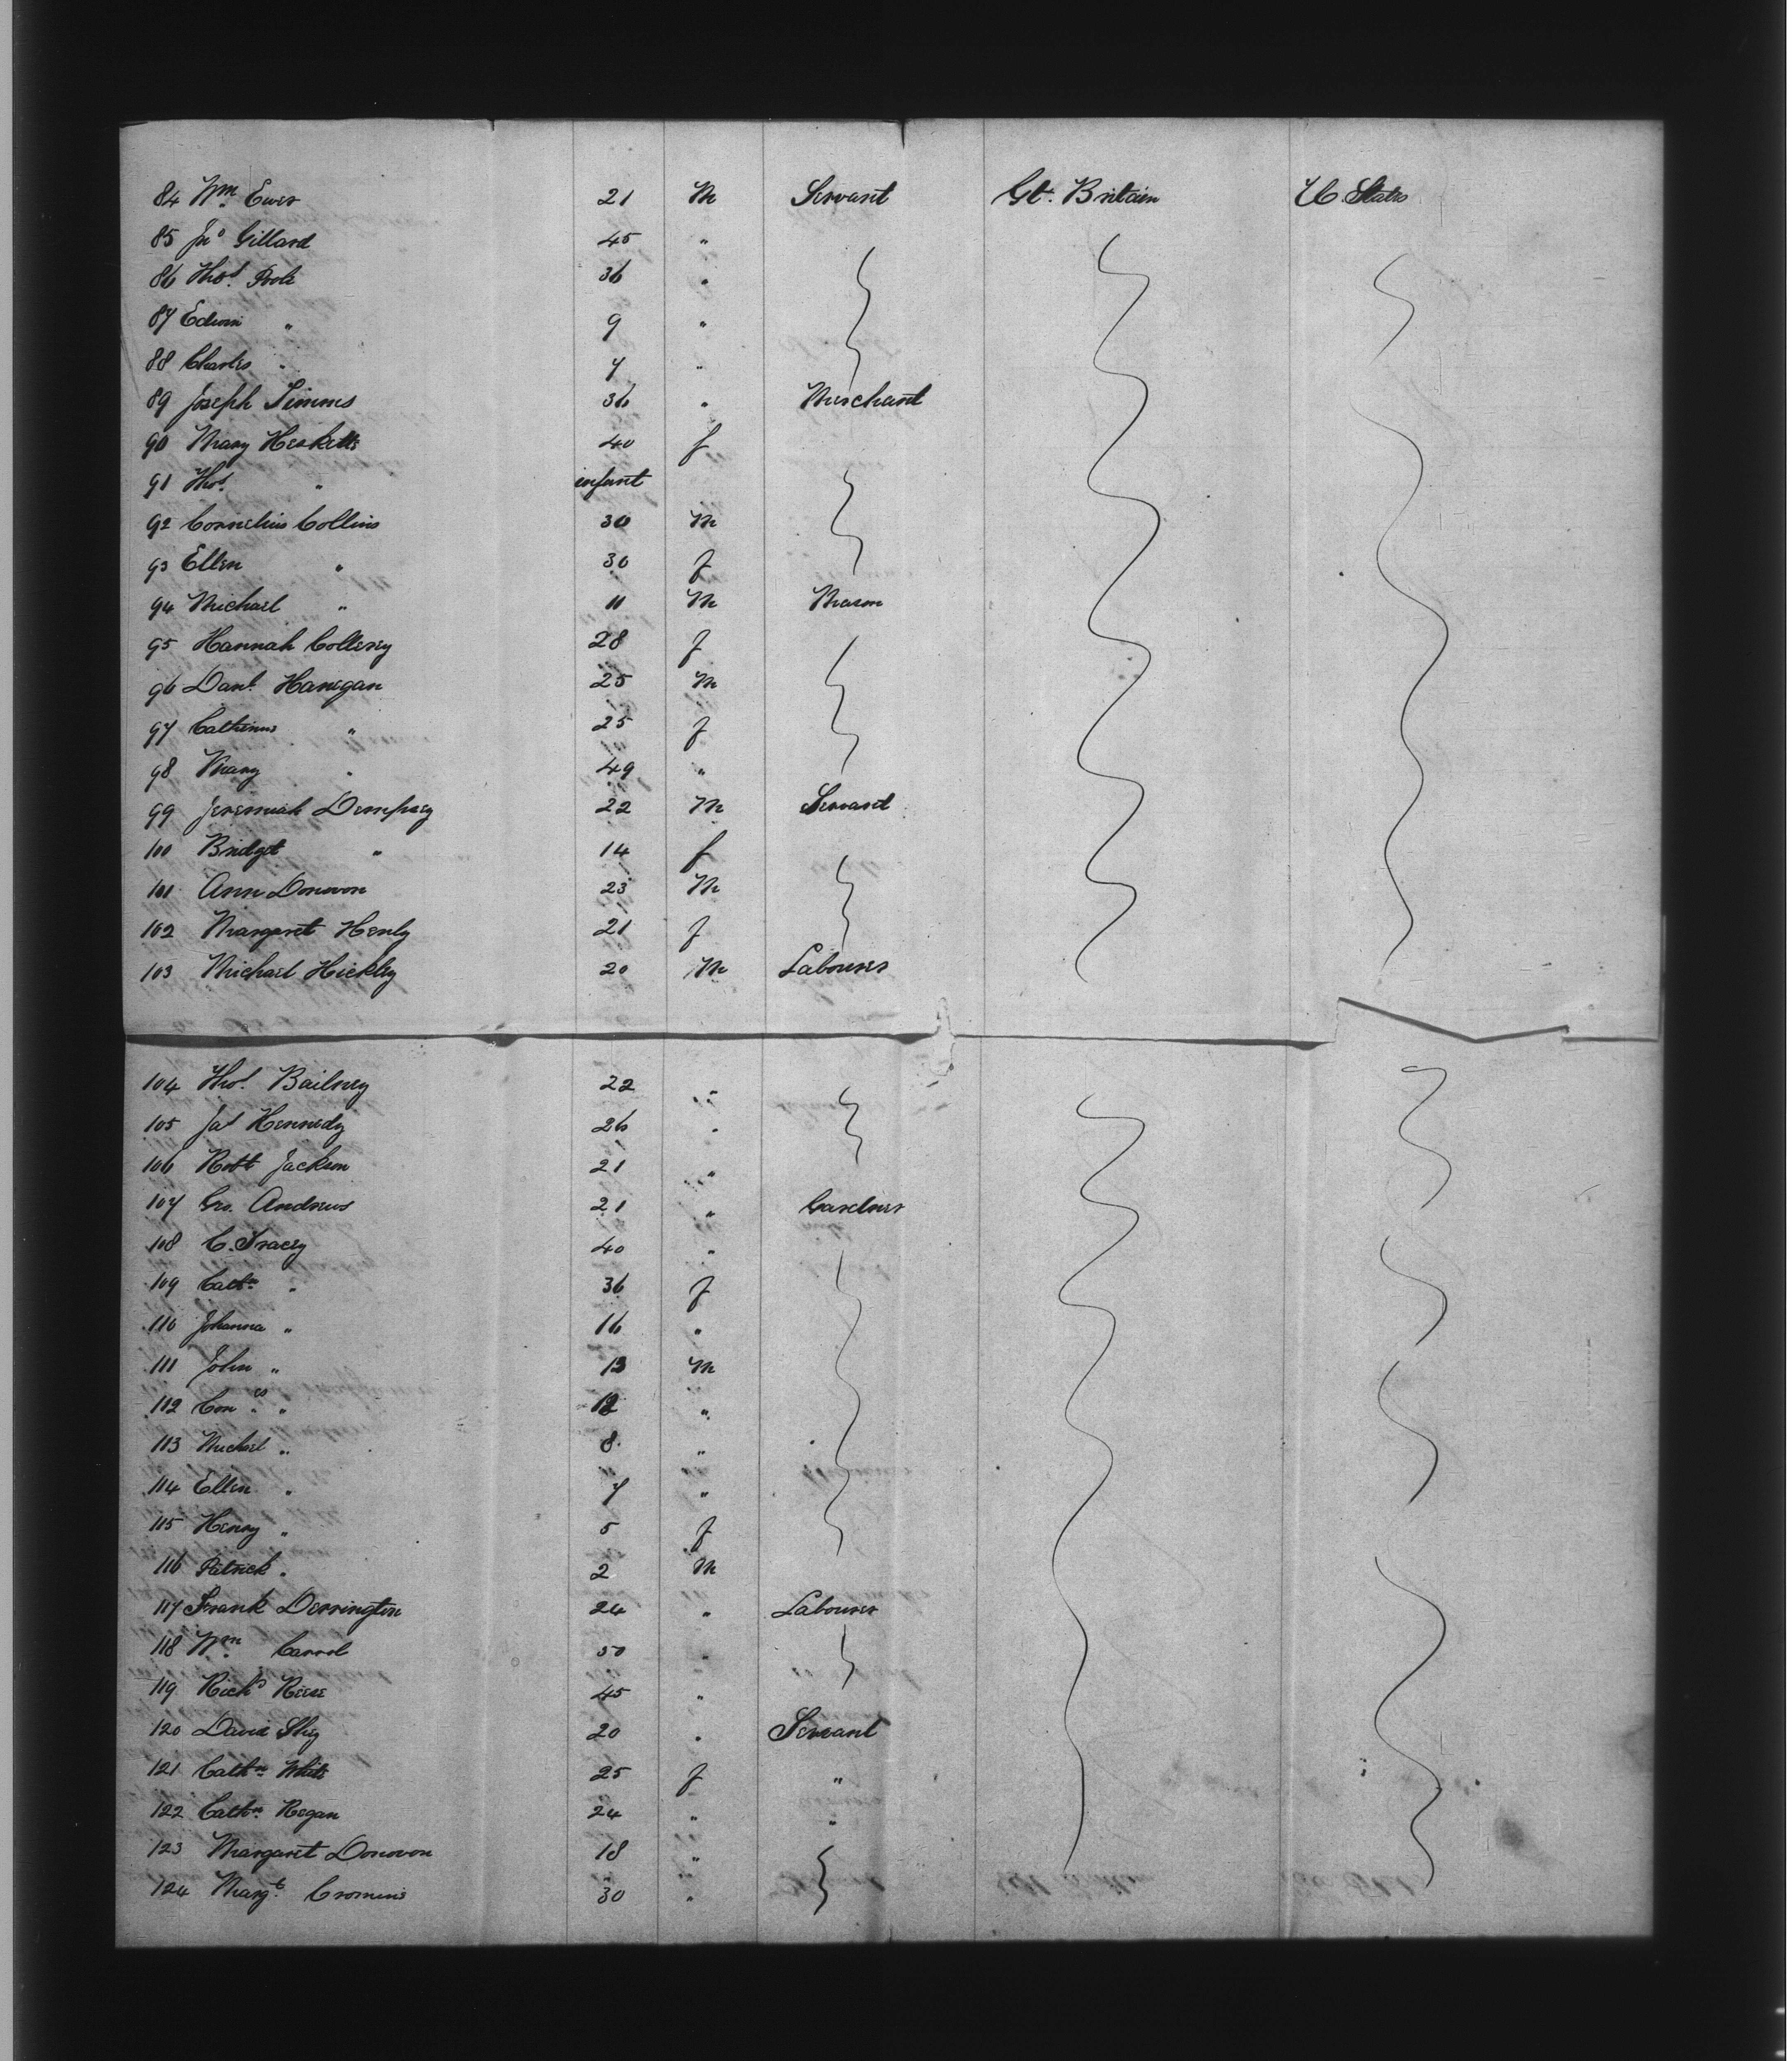 84 Wm. Ewer 21 M Servant Gt. Britain U. States
85 Jno Gillard 45 "
86 Thos. Poole 36 "
87 Edwin " 9 "
88 Charles " 7 "
89 Joseph Simms 36 " Merchant
90 Mary Hesketts 40 f
91 Thos. " infant
92 Cornelius Collins 30 M
93 Ellen " 30 f
94 Michael " 11 M Mason
95 Hannah Collerey 28 f
96 Danl. Hanegan 25 M
97 Catherine " 25 f
98 Mary " 49 "
99 Jeremiah Dempsey 22 M Servant
100 Bridget " 14 f
101 Ann Donovon 23 M
102 Margaret Henly 21 f
103 Michael Hickley 20 M Labourer
104 Thos. Bailney 22 "
105 Jas Hennedy 26 "
106 Robt Jackson 21 "
107 Geo. Andrews 21 " Gardner
108 C. Tracey 40 "
109 Cathn " 36 f
110 Johanna " 16 "
111 John " 13 M
112 Con.es " 12 "
113 Michael " 8 "
114 Ellen " 7 "
115 Henry " 5 f
116 Patrick " 2 M
117 Frank Derrington 24 " Labourer
118 Wm. Carrol 50 "
119 Richd Reese 45 "
120 David Shey 20 " Servant
121 Cathn. White 25 f "
122 Cathn. Regan 24 " "
123 Margaret Donovon 18 "
124 Margt. Cromins 30 "